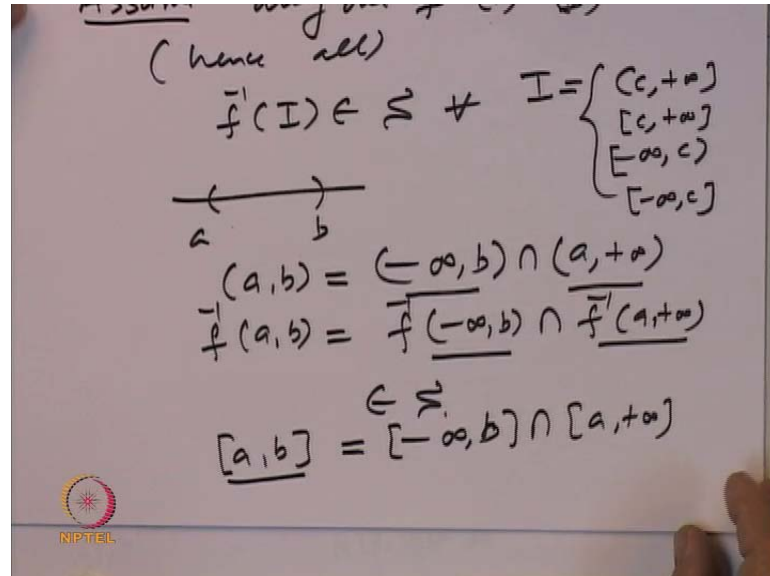 Assume any one f (i) (ii)
(hence all)
f⁻¹(I) ∈ S ∀ I = { (c, +∞]
[c, +∞]
[-∞, c)
[-∞, c]
a b
(a, b) = (-∞, b) ∩ (a, +∞)
f⁻¹(a, b) = f⁻¹(-∞, b) ∩ f⁻¹(a, +∞)
∈ S.
[a, b] = [-∞, b] ∩ [a, +∞]
NPTEL